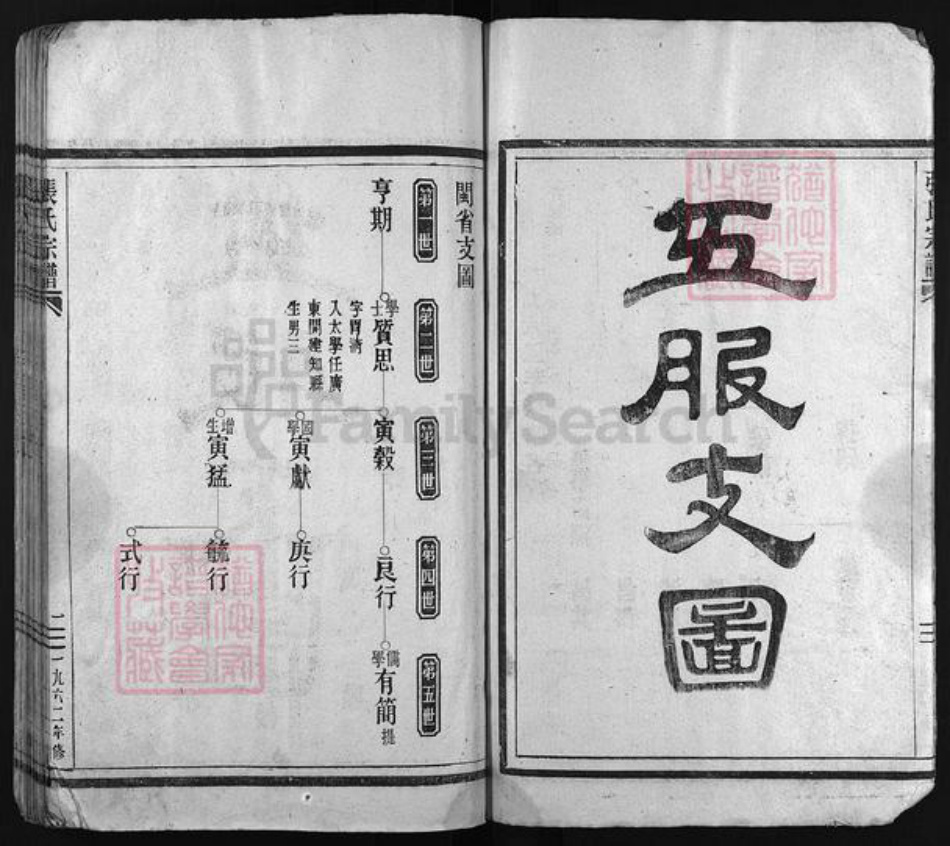 五服支圖
張氏宗譜
閩省支圖
第一世
亨期
第二世
學士質思
字胃濤
入太學任廣
東開建知縣
生男三
第三世
寅穀
國學寅獻
增生寅猛
第四世
良行
庚行
毓行
式行
第五世
儒學有簡提
張氏宗譜
一九六二年修
FamilySearch